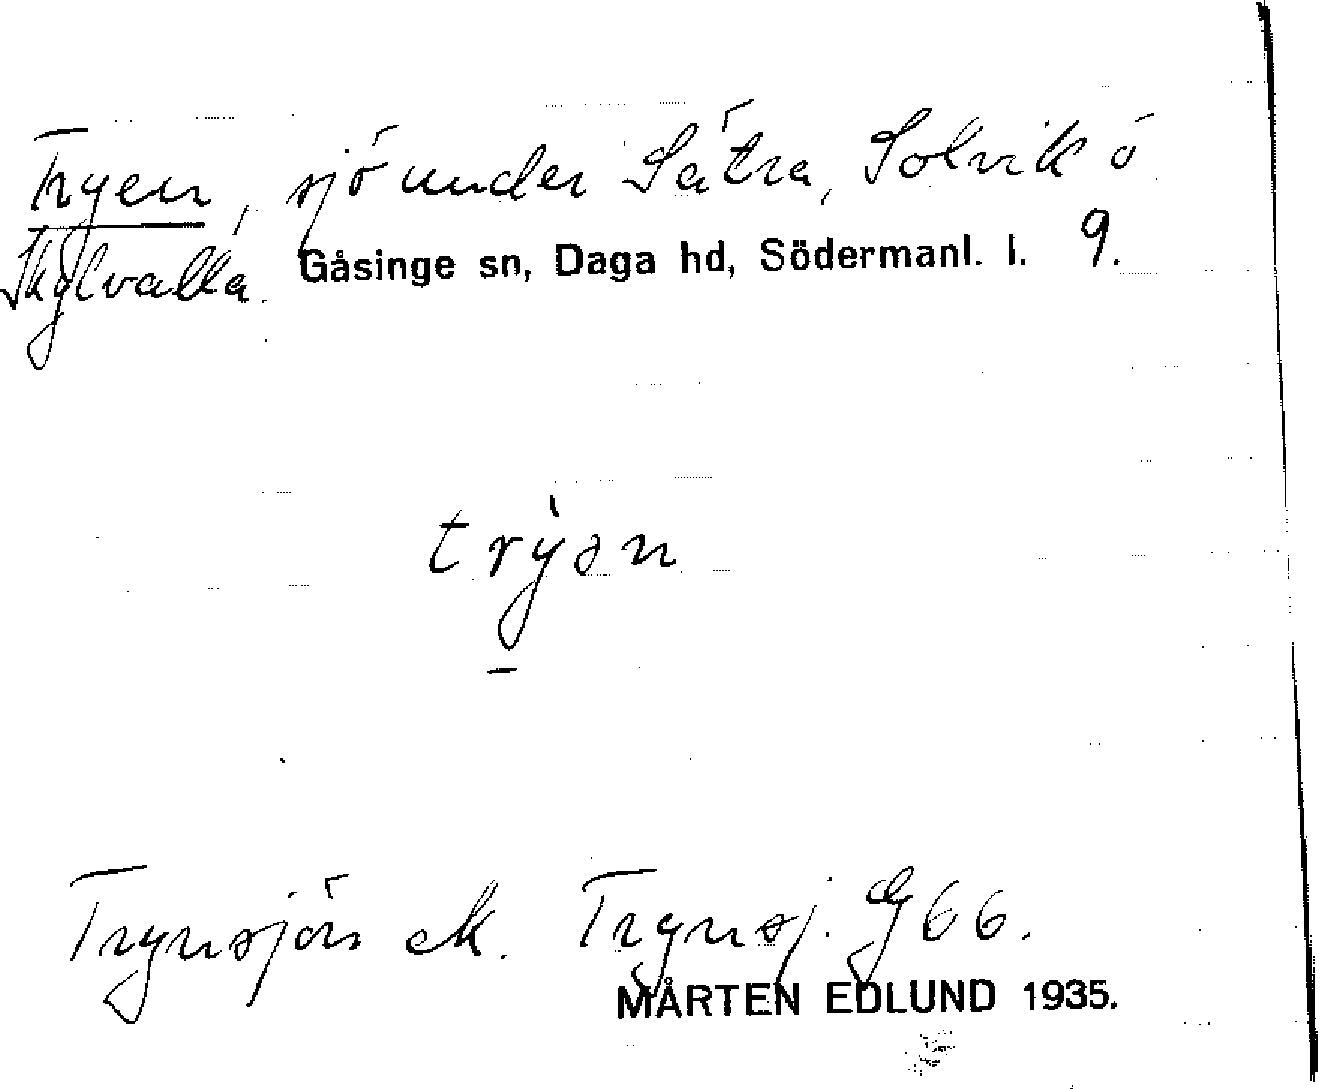 Tryen, sjö under Sätra, Solvik o
Skylvalla. Gåsinge sn, Daga hd, Södermanl. l. 9.
trỳən
Trynsjön ek. Trynsj. G 66.
MÅRTEN EDLUND 1935.